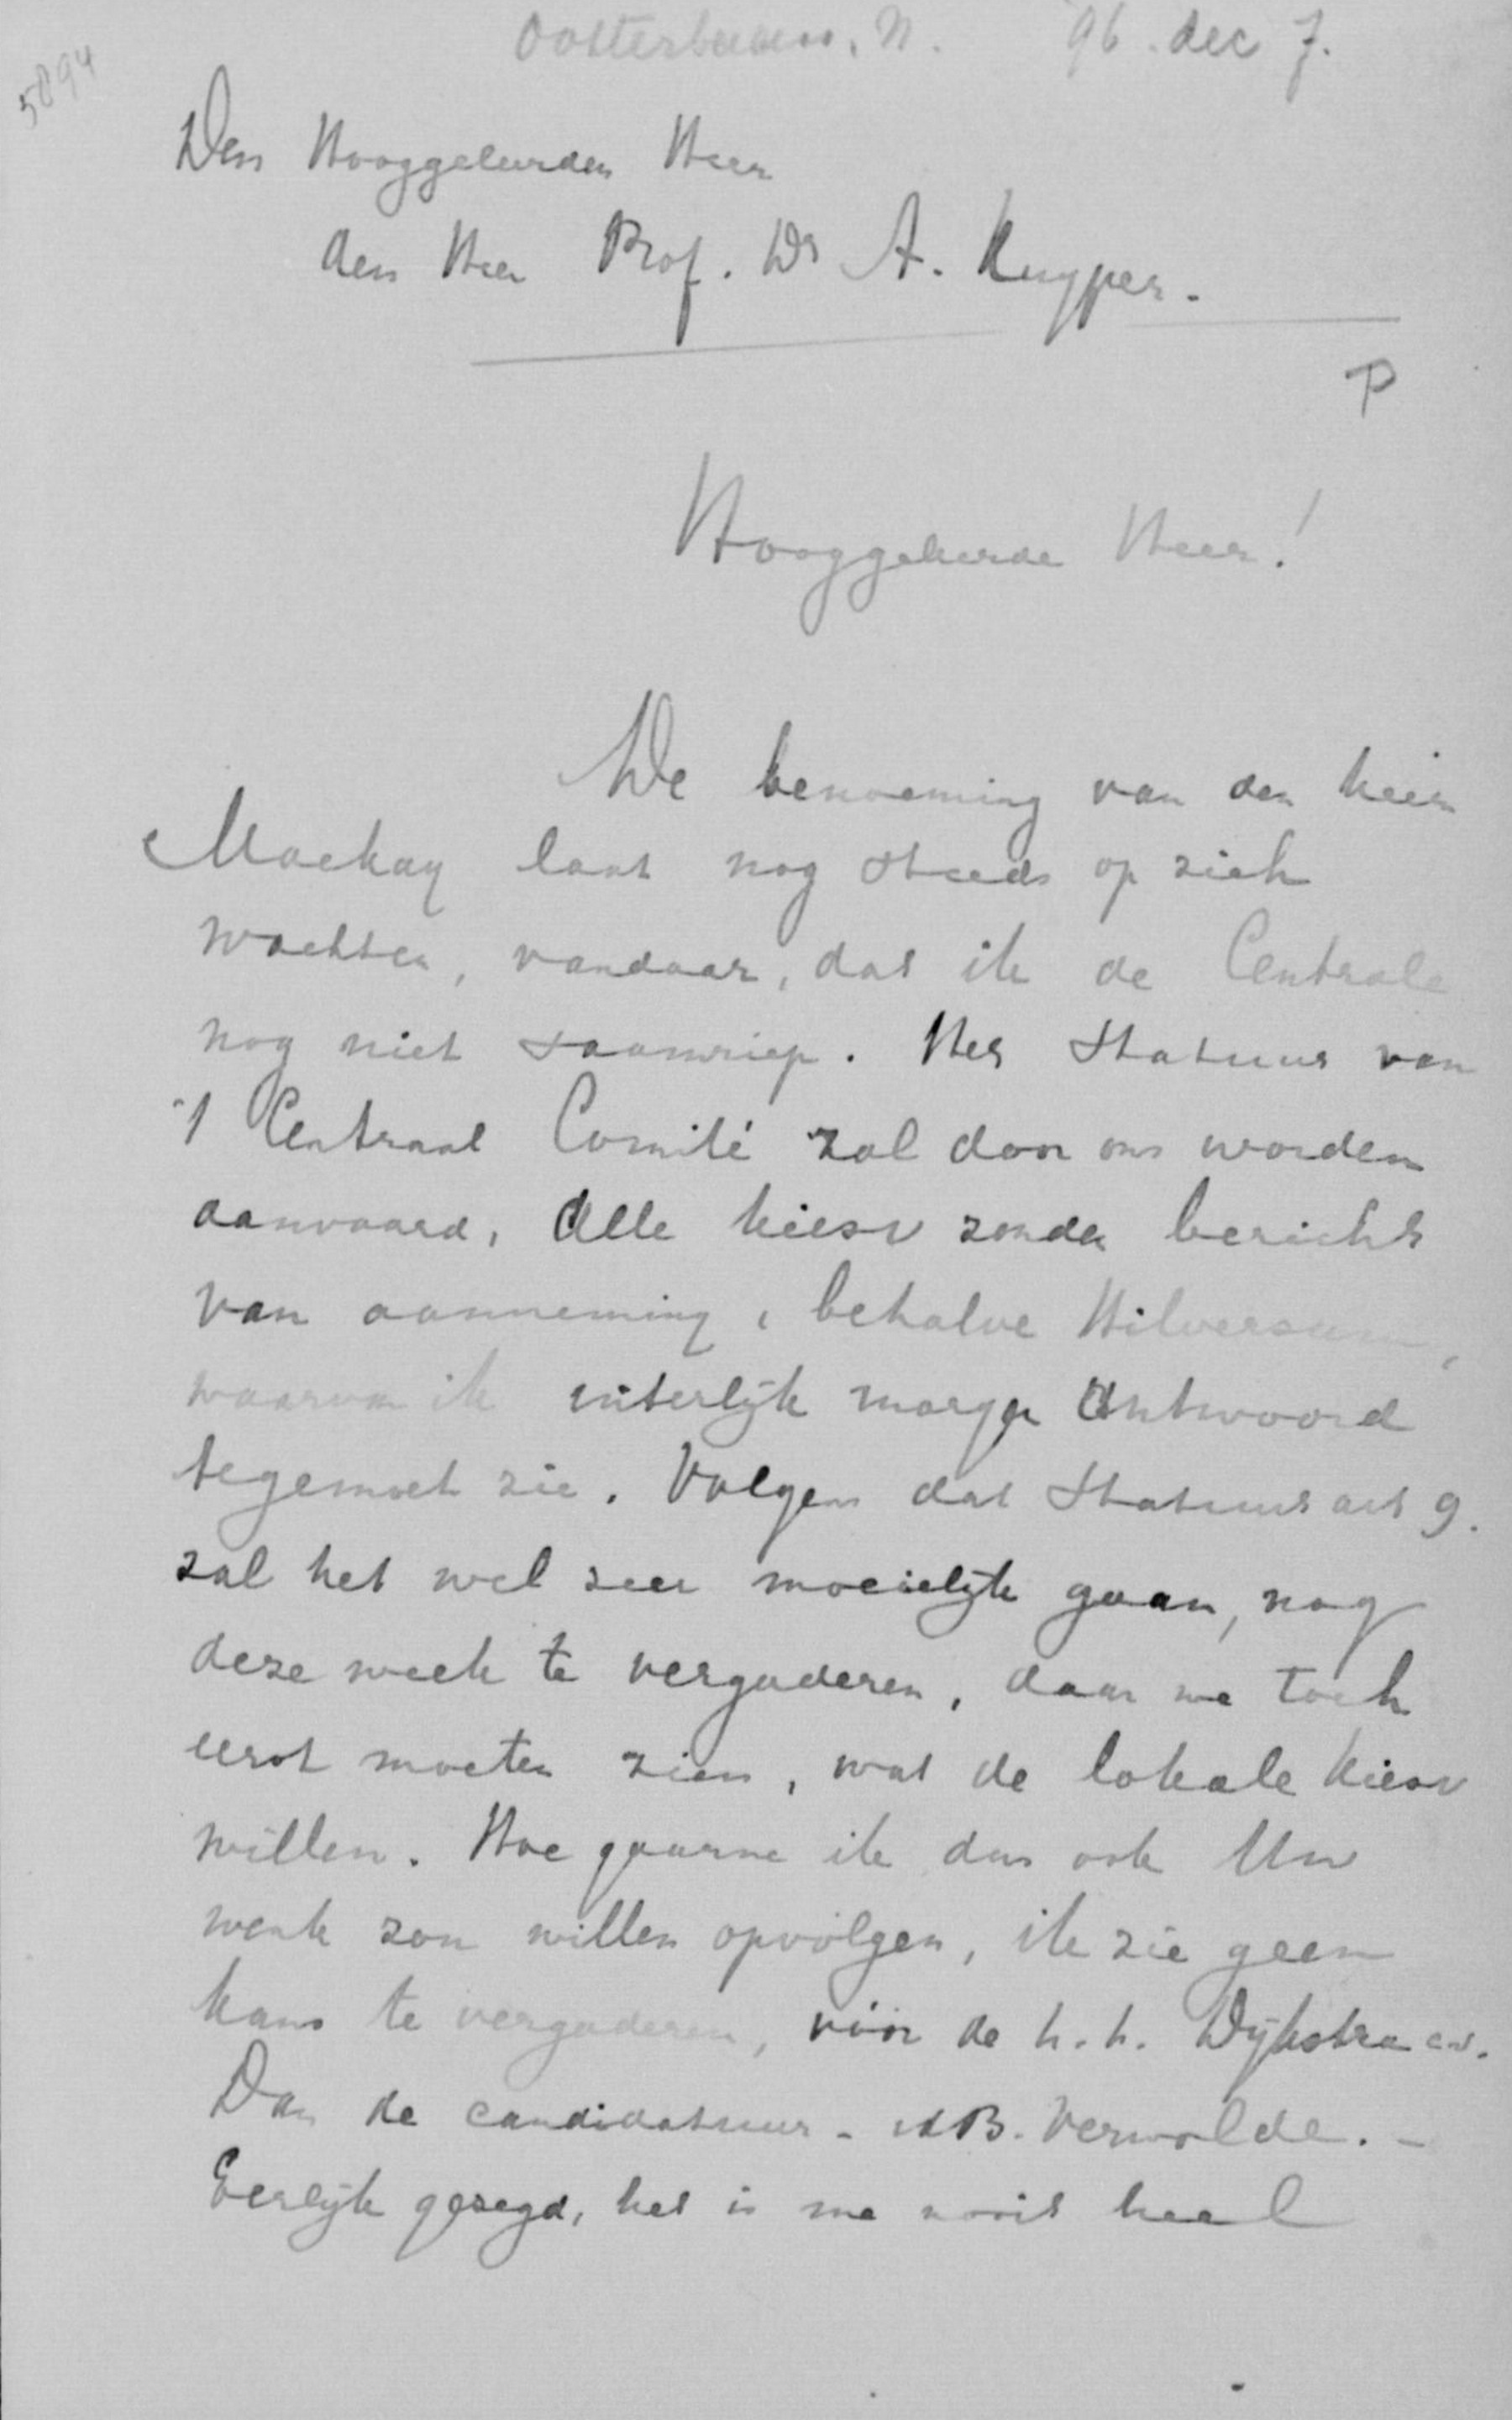 5894
Oosterbaan, N. '96 dec 7.
Den Hooggeleerden Heer
den Heer Prof. Dr A. Kuyper.
P
Hooggeleerde Heer!
De benoeming van den heer
Mackay laat nog steeds op zich
wachten, vandaar, dat ik de Centrale
nog niet saamriep. Het Statuut van
't Centraal Comité zal door ons worden
aanvaard, Alle kiesv zonden bericht
van aanneming, behalve Hilversum,
waarvan ik uiterlijk morgen Antwoord
tegemoet zie. Volgens dat Statuut art 9.
zal het wel zeer moeielijk gaan, nog
deze week te vergaderen, daar we toch
eerst moeten zien, wat de lokale kiesv
willen. Hoe gaarne ik dus ook Uw
wenk zou willen opvolgen, ik zie geen
kans te vergaderen, vóór de h.h. Dijkstra
Dan de candidatuur - v d B. Verwolde. -
Eerlijk gezegd, het is me nooit heel